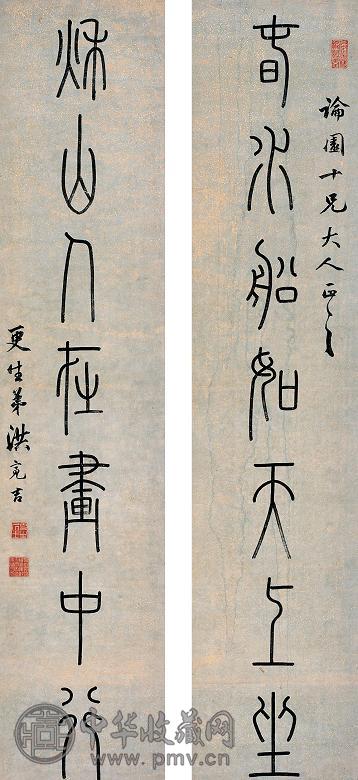 論園十兄大人正之
春水船如天上坐
秌山人在畫中行
更生弟洪亮吉
中华收藏网
www.pmv.cn